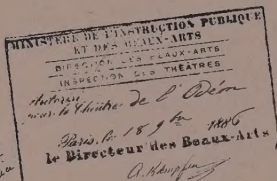 MINISTÈRE DE L'INSTRUCTION PUBLIQUE
ET DES BEAUX-ARTS
DIRECTION DES BEAUX-ARTS
INSPECTION DES THÉATRES
Autorisé
pour le Théâtre de l'Odéon
Paris, le 18 9bre 1886
le Directeur des Beaux-Arts
A. Kaempfen